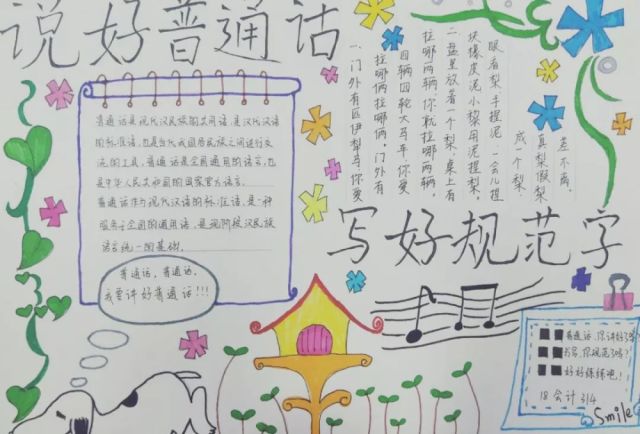 说好普通话
普通话是现代汉民族的共同语,是汉代汉语
的标准语,也是当代我国各民族之间进行交
流的工具,普通话是全国通用的语言,也
是中华人民共和国的国家官方语言。
普通话作为现代汉语的标准语,是一种
服务于全国的通用语,是现阶段汉民族
语言统一的基础。
普通话,普通话,
我要讲好普通话!!!
一、门外有四匹伊犁马,你要
拉哪俩拉哪俩,门外有
四辆四轮大马车,你爱
拉哪两辆,你就拉哪两辆,
二、盘里放着一个梨,桌上有
块橡皮泥,小楼用泥捏梨,
眼看梨,手捏泥,一会儿捏
成一个梨,
真梨假梨
差不离,
写好规范字
普通话,你讲好了吗?
书写,你规范了吗?
好好练练吧!
18会计314
Smile